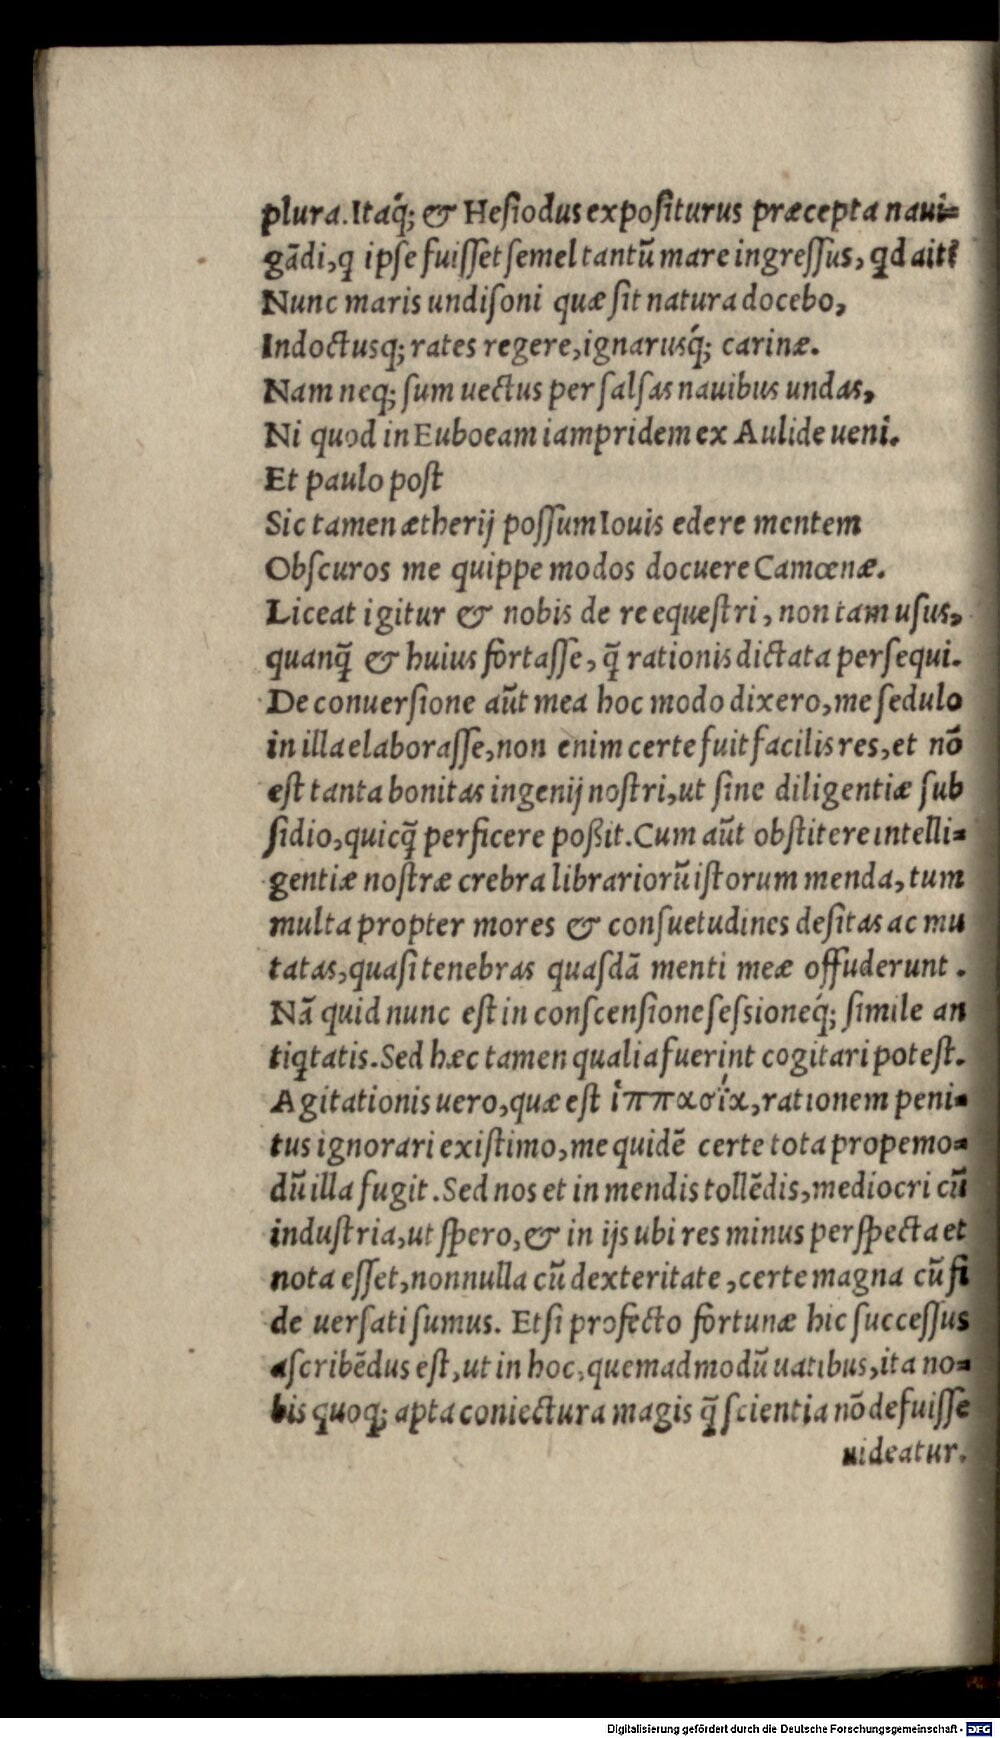 plura. Itaq́; & Heſiodus expoſiturus præcepta naui=
gādi, q ipſe fuiſſet ſemel tantū mare ingreſſus, qd ait:
Nunc maris undiſoni quæ ſit natura docebo,
Indoctusq; rates regere, ignarusq́; carinæ.
Nam neq; ſum uectus per ſalſas nauibus undas,
Ni quod in Euboeam iampridem ex Aulide ueni.
Et paulo poſt
Sic tamen ætherij poſſum Iouis edere mentem
Obſcuros me quippe modos docuere Camœnæ.
Liceat igitur & nobis de re equeſtri, non tam uſus,
quanq̃ & huius fortaſſe, q̃ rationis dictata perſequi.
De conuerſione aūt mea hoc modo dixero, me ſedulo
in illa elaboraſſe, non enim certe fuit facilis res, et nō
eſt tanta bonitas ingenij noſtri, ut ſine diligentiæ ſub
ſidio, quicq̃ perficere poßit. Cum aūt obſtitere intelli=
gentiæ noſtræ crebra librariorū iſtorum menda, tum
multa propter mores & conſuetudines deſitas ac mu
tatas, quaſi tenebras quaſdā menti meæ offuderunt.
Nā quid nunc eſt in conſcenſione ſeſsioneq́; ſimile an
tiqtatis. Sed hæc tamen qualia fuerint cogitari poteſt.
Agitationis uero, quæ eſt ἱππασία, rationem peni=
tus ignorari exiſtimo, me quidē certe tota propemo=
dū illa fugit. Sed nos et in mendis tollēdis, mediocri cū
induſtria, ut ſpero, & in ijs ubi res minus perſpecta et
nota eſſet, nonnulla cū dexteritate, certe magna cū fi
de uerſati ſumus. Etſi profecto fortunæ hic ſucceſſus
aſcribēdus eſt, ut in hoc, quemadmodū uatibus, ita no=
bis quoq; apta coniectura magis q̃ ſcientia nō defuiſſe
uideatur.
Digitalisierung gefördert durch die Deutsche Forschungsgemeinschaft - DFG